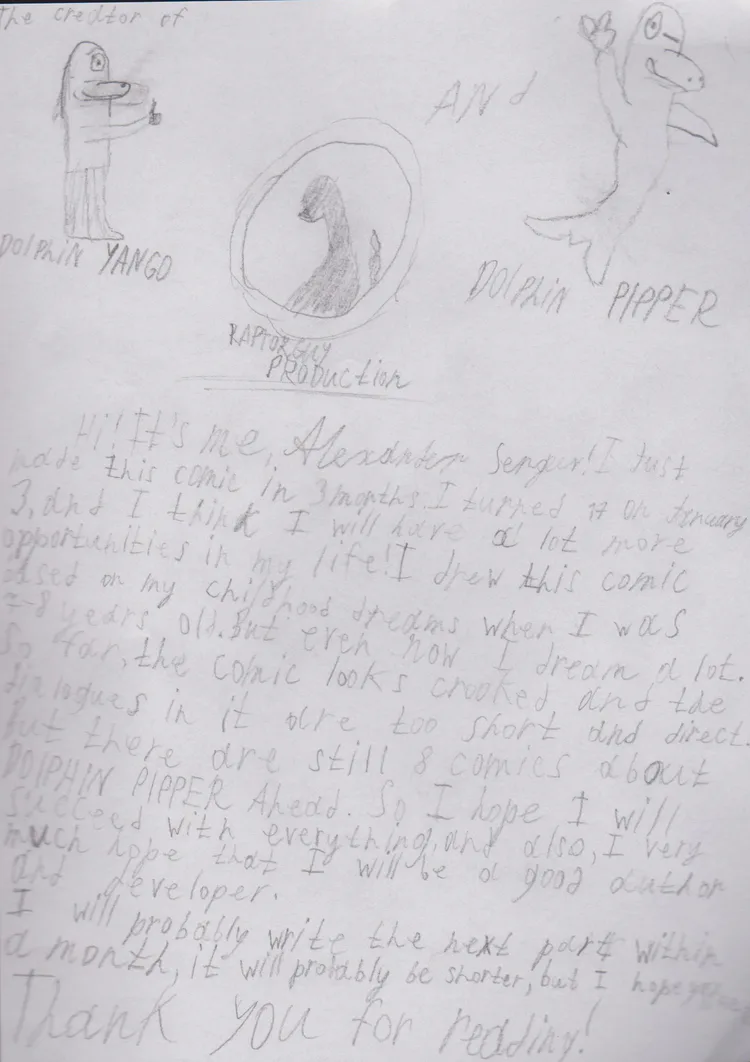 The creator of
AND
DOLPHIN YANGO
DOLPHIN PIPPER
RAPTOR GUY
PRODUCTION
Hi! It's me, Alexander Sengur! I just
made this comic in 3 months. I turned 17 on January
3, and I think I will have a lot more
opportunities in my life! I drew this comic
based on my childhood dreams when I was
7-8 years old. But even now I dream a lot.
So far, the comic looks crooked, and the
dialogues in it are too short and direct.
But there are still 8 comics about
DOLPHIN PIPPER Ahead. So I hope I will
succeed with everything, and also, I very
much hope that I will be a good author
and developer.
I will probably write the next part within
a month, it will probably be shorter, but I hope
Thank you for reading!